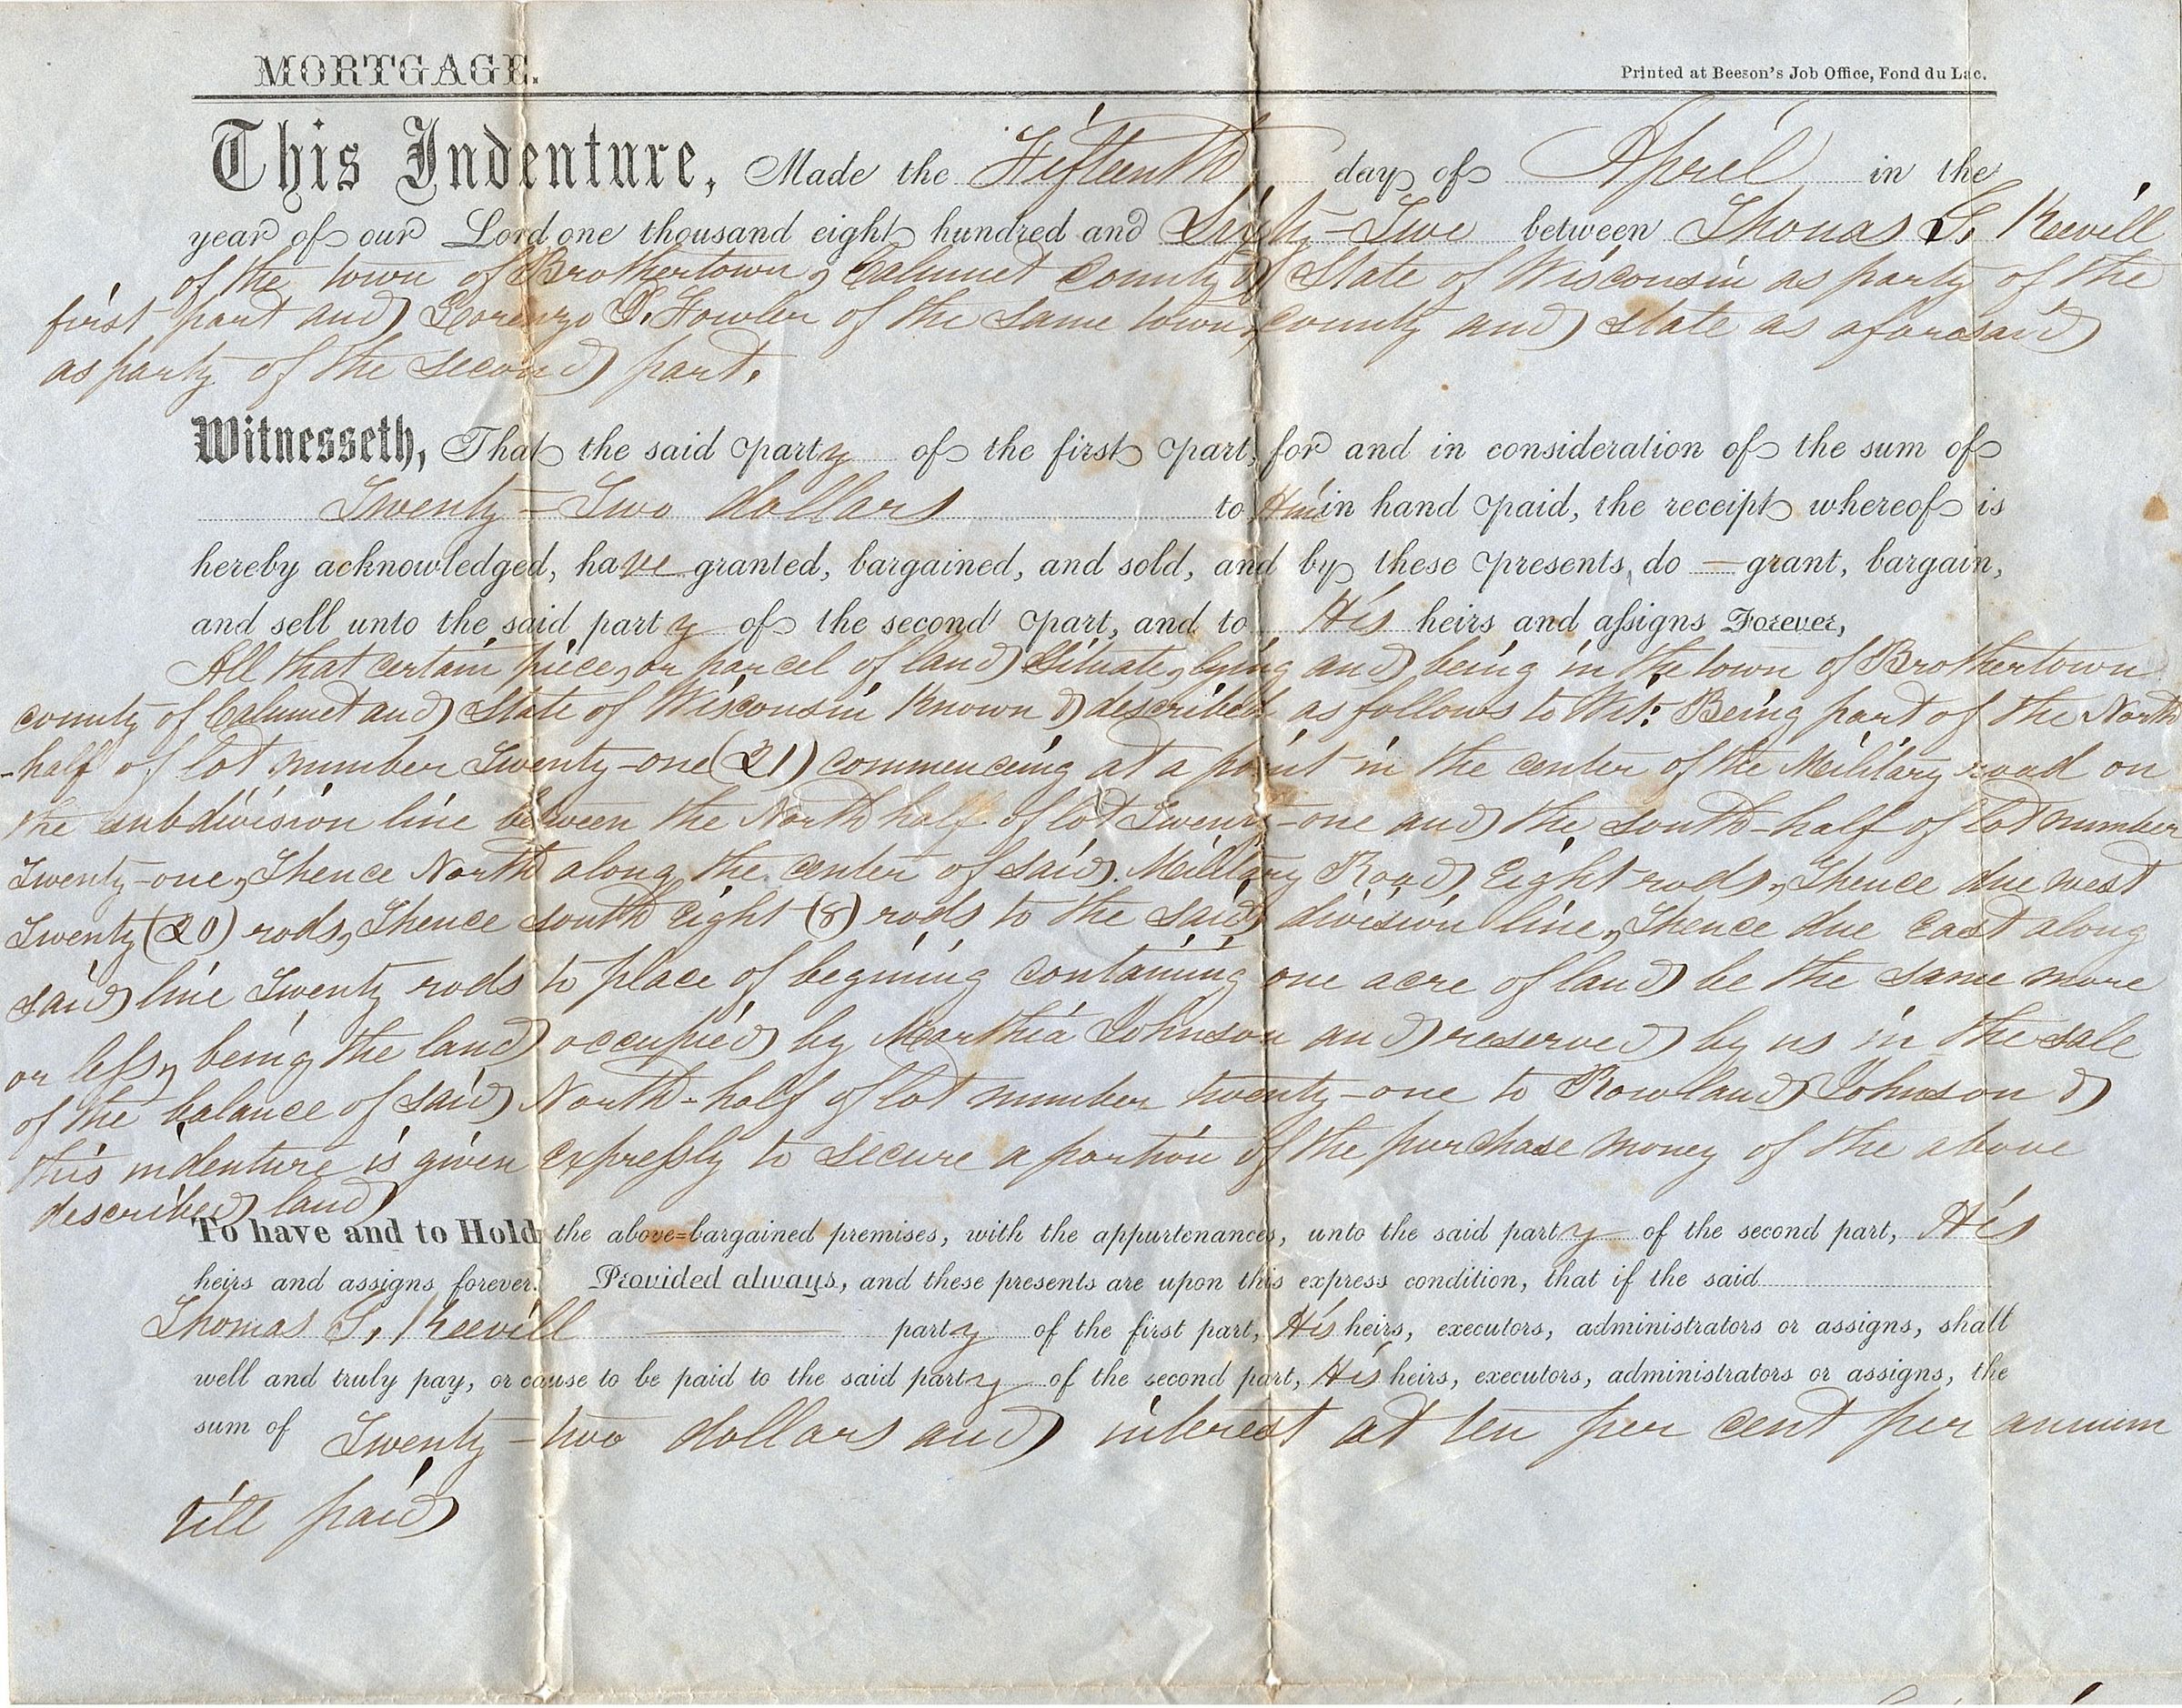 MORTGAGE.
Printed at Beeson's Job Office, Fond du Lac.
This Indenture, Made the Fifteenth day of April in the
year of our Lord one thousand eight hundred and Sixty-Two between Thomas S. Keevill
of the town of Brothertown, Calumet County & State of Wisconsin as party of the
first part and Lorenzo D. Fowler of the same town, county and state as aforesaid
as party of the second part.
Witnesseth, That the said party of the first part, for and in consideration of the sum of
Twenty-Two dollars to Him in hand paid, the receipt whereof is
hereby acknowledged, have granted, bargained, and sold, and by these presents, do — grant, bargain,
and sell unto the said party of the second part, and to His heirs and assigns Forever,
All that certain piece, or parcel of land Situate, lying and being in the town of Brothertown
county of Calumet and State of Wisconsin Known & described as follows to Wit: Being part of the North
-half of lot number Twenty-one (21) commenceing at a point in the center of the Military road on
the subdivision line between the North half of lot Twenty-one and the south-half of lot number
Twenty-one, Thence North along the center of said Military Road Eight rods, Thence due west
Twenty (20) rods, Thence south Eight (8) rods to the said division line, Thence due East along
said line Twenty rods to place of begining containing one acre of land be the same more
or less, being the land occupied by Marthia Johnson and reserved by us in the sale
of the balance of said North-half of lot number twenty-one to Rowland Johnson &
this indenture is given expressly to secure a portion of the purchase money of the above
described land
To have and to Hold the above-bargained premises, with the appurtenances, unto the said party of the second part, His
heirs and assigns forever. Provided always, and these presents are upon this express condition, that if the said
Thomas S. Keevill — party of the first part, His heirs, executors, administrators or assigns, shall
well and truly pay, or cause to be paid to the said party of the second part, His heirs, executors, administrators or assigns, the
sum of Twenty-two dollars and interest at ten per cent per annum
till paid